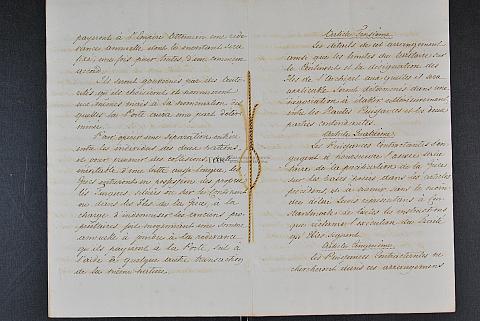 payeront à l'Empire Ottoman une rede-
vance annuelle dont le montant sera
fixé, une fois pour toutes d'un commun
accord.
Ils seront gouvernés par des Auto-
rités qu'ils choisiront et nommeront
eux mêmes mais à la nomination des
quelles la Porte aura une part déter-
minée.
Pour opérer une séparation entière
entre les individus des deux nations,
et pour prévenir des collisions, consé-
quence d'une lutte aussi longue, les
Grecs entreront en possession des proprié-
tés Turques, situées ou sur le Continent
ou dans les Îles de la Grèce, à la
charge d'indemniser les anciens pro-
priétaires, soit moyennant une somme
annuelle à ajouter à la redevance
qu'ils payeront à la Porte, soit à
l'aide de quelque autre transaction
de la même nature.
Article Troisième
Les détails de cet arrangement
ainsi que les limites du territoire sur
le Continent et la désignation des
Îles de l'Archipel auxquelles il sera
applicable seront déterminés dans une
négociation à établir ultérieurement
entre les Hautes Puissances et les deux
parties contendantes.
Article Quatrième
Les Puissances Contractantes s'en-
gagent à poursuivre l'oeuvre salu-
taire de la pacification de la Grèce
sur les bases posées dans les articles
précédens et à munir sans le moin-
dre délai leurs représentans à Con-
stantinople de toutes les instructions
que réclame l'exécution du Traité
qu'Elles signent.
Article Cinquième
Les Puissances Contractantes ne
chercheront dans ces arrangemens